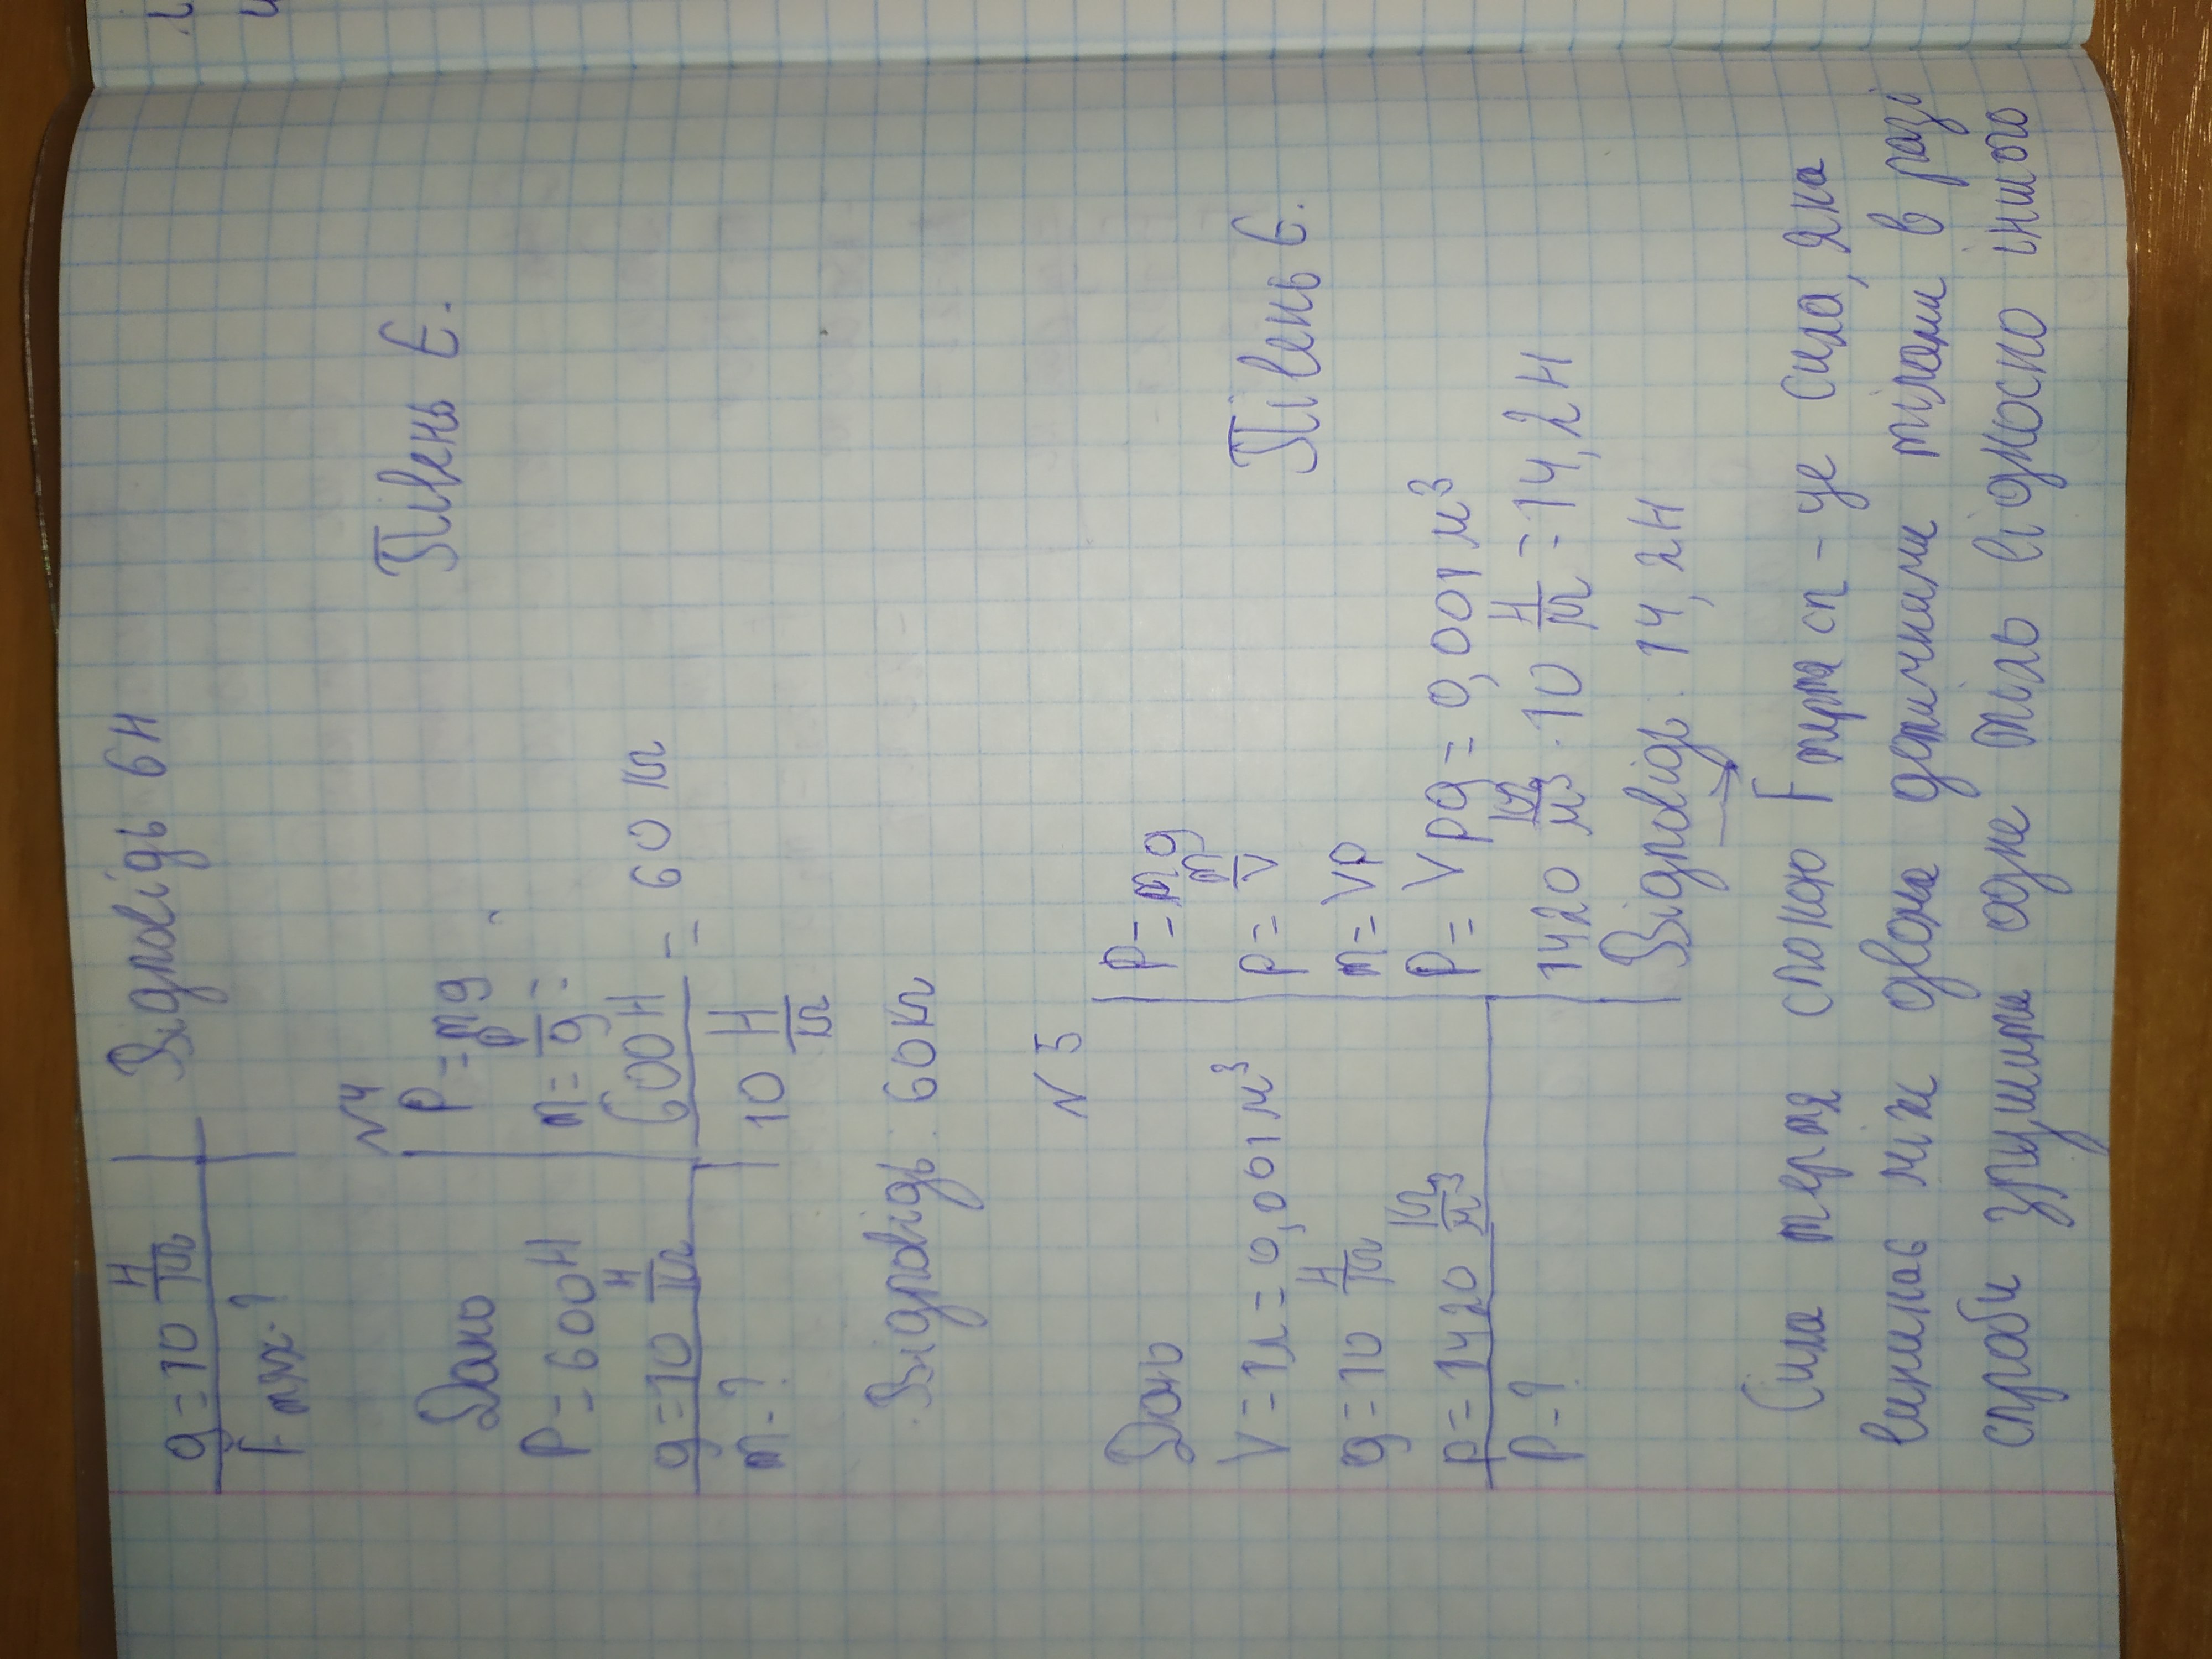 g = 10 Н/кг
Fтяж - ?
Відповідь 6Н
N4
Дано
P = 600 Н
g = 10 Н/кг
m - ?
P = mg
m = P/g =
600 Н / 10 Н/кг = 60 кг
Півень Є.
Відповідь: 60 кг
N 5
Дано
V = 1л = 0,001 м³
g = 10 Н/кг
ρ = 1420 кг/м³
P - ?
P = mg
ρ = m/V
m = Vρ
P = Vρg = 0,001 м³
1420 кг/м³ · 10 Н/кг = 14,2 Н
Відповідь: 14,2Н
Півень Є.
Сила тертя спокою F терт сп - це сила, яка
виникає між двома дотичними тілами в разі
спроби зрушити одне тіль відносно іншого